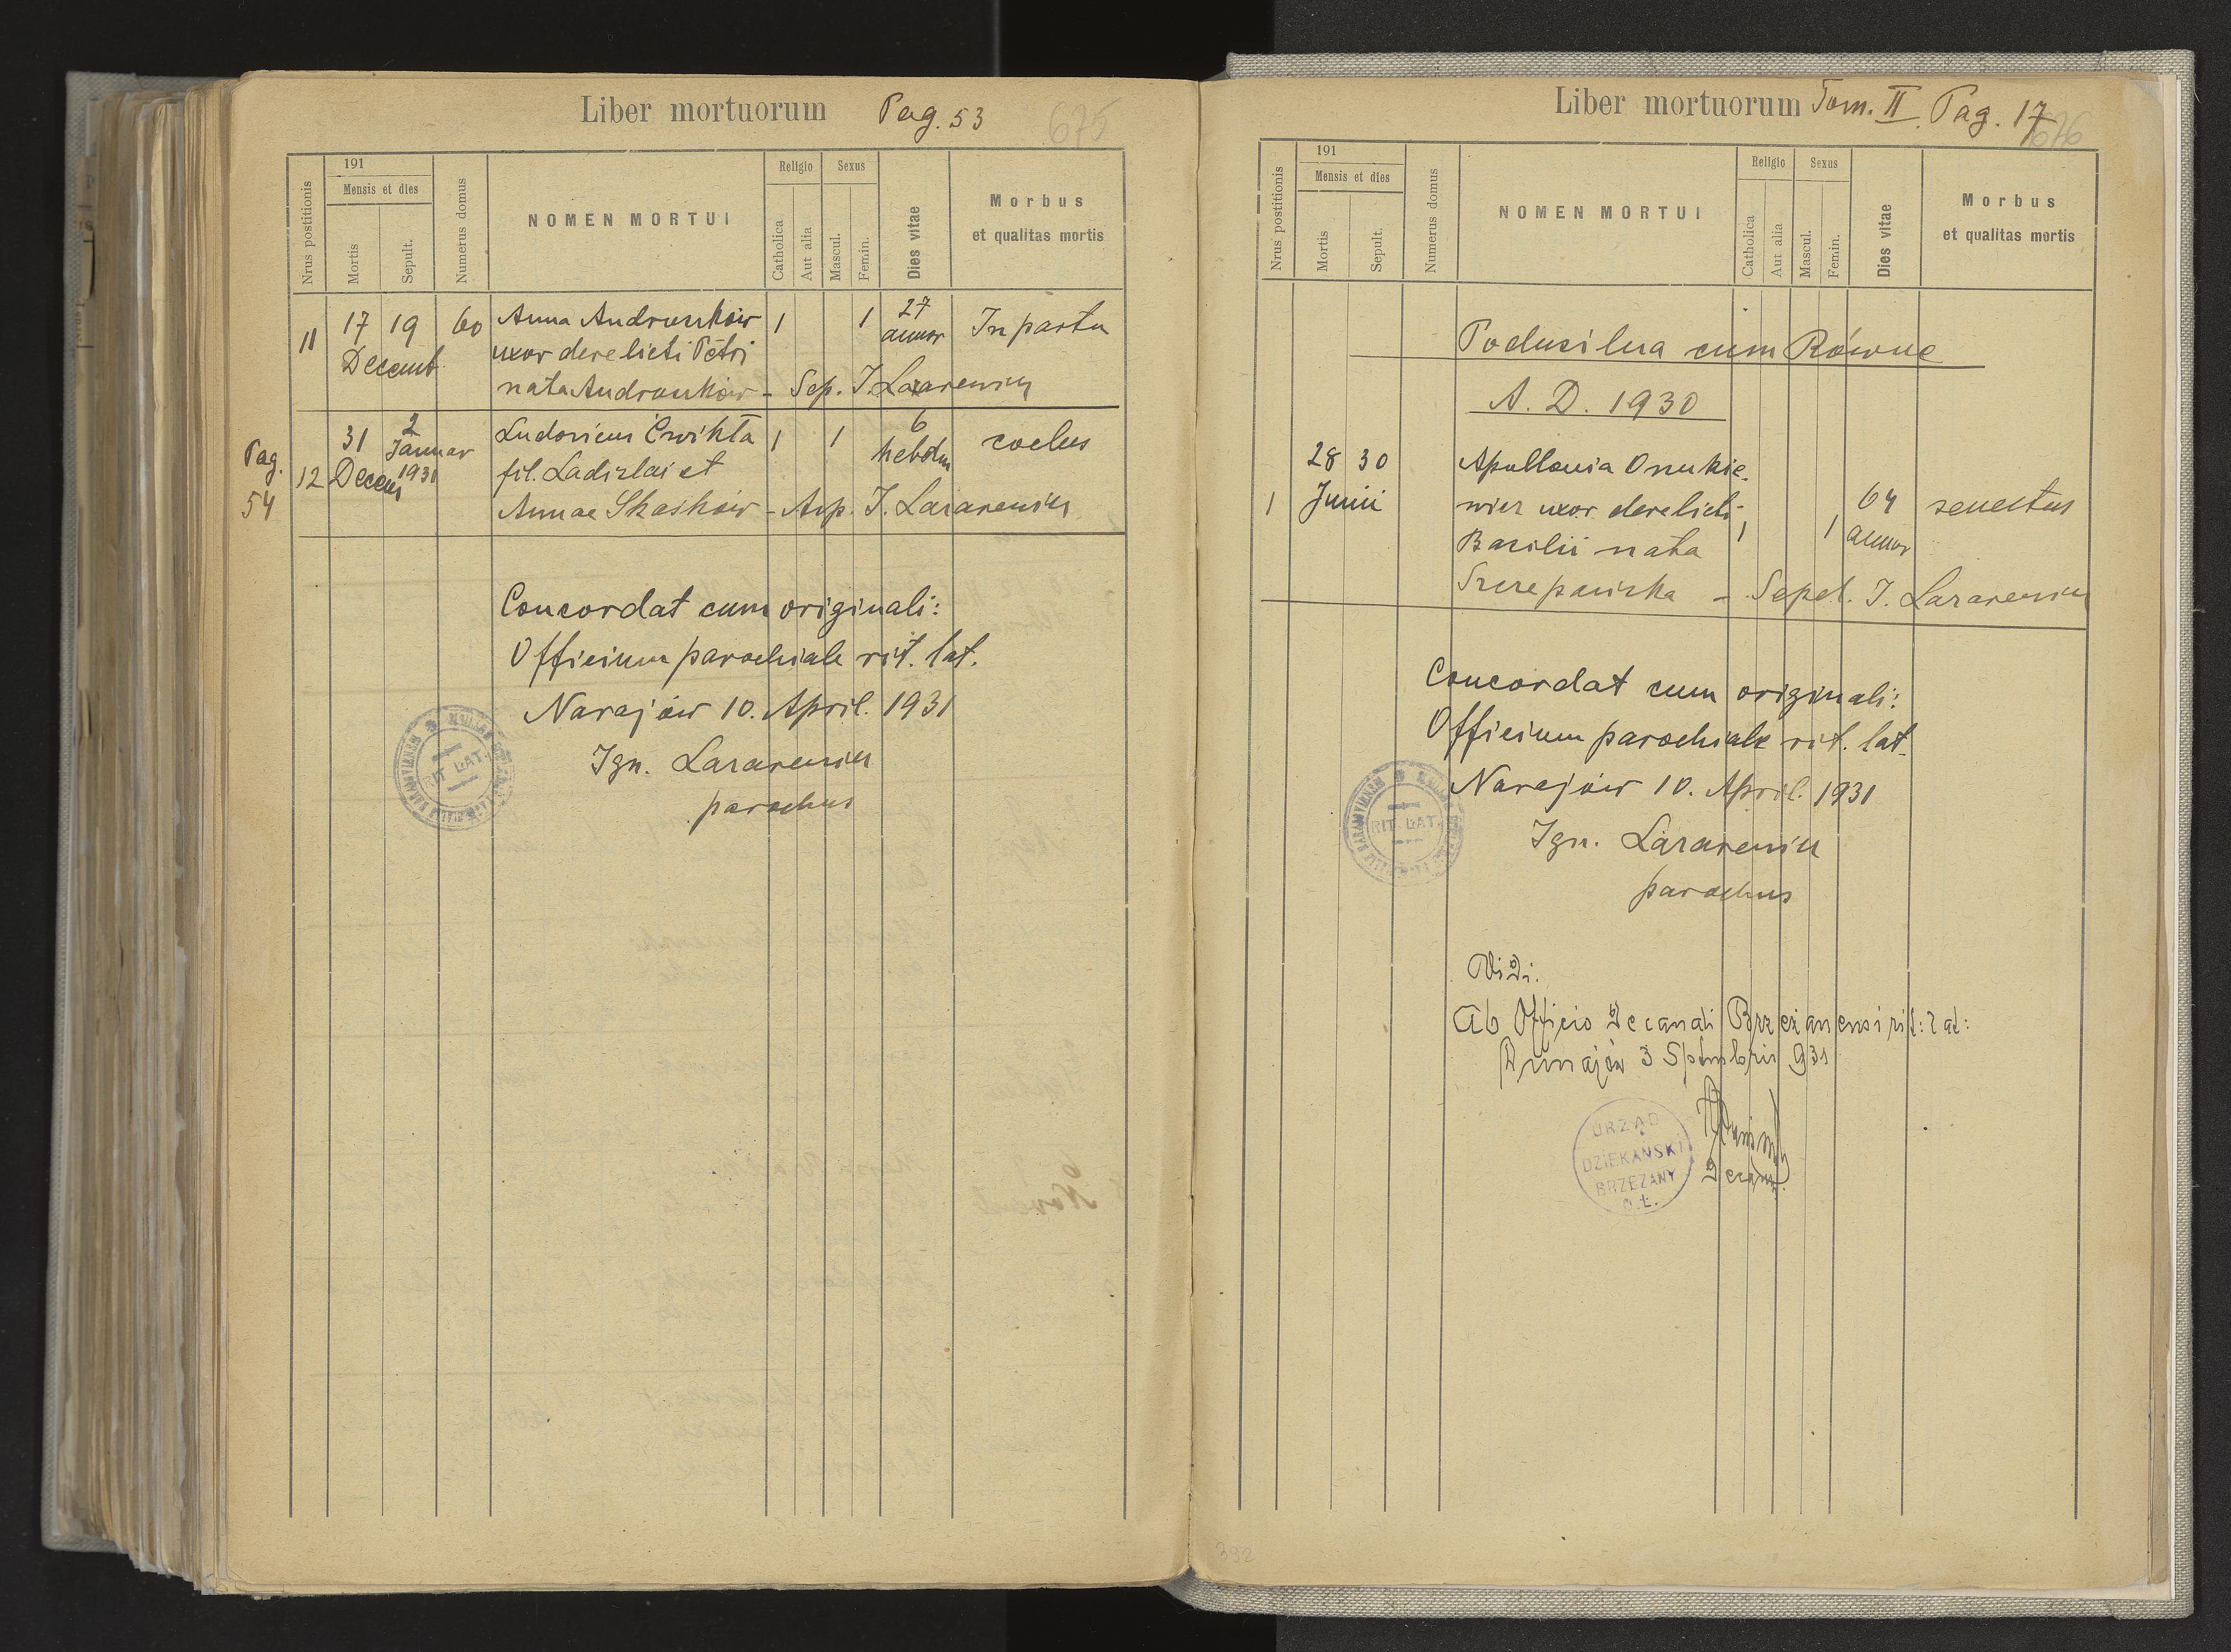 Liber mortuorum Pag. 53
675
Nrus postitionis
191
Mensis et dies
Mortis
Sepult.
Numerus domus
NOMEN MORTUI
Religio
Catholica
Aut alia
Sexus
Mascul.
Femin.
Dies vitae
Morbus
et qualitas mortis
11 17 19 60 Anna Andrunków 1 1 27 In partu
Decemb. uxor derelicti Petri annor
nata Andrunków - Sep. I. Lazarewicz
Pag. 54
12 31 2 Ludovicus Ćwikła 1 1 6 coelus
Decem Januar 1931 fil. Ladizlai et hebdm
Annae Skaskow - Asp. I. Lazarewicz
Concordat cum originali:
Officium parochiale rit. lat.
Narajów 10. April. 1931
Ign. Lazarewicz
parochus
RIT. LAT.
Liber mortuorum Tom. II. Pag. 17
676
Nrus postitionis
191
Mensis et dies
Mortis
Sepult.
Numerus domus
NOMEN MORTUI
Religio
Catholica
Aut alia
Sexus
Mascul.
Femin.
Dies vitae
Morbus
et qualitas mortis
Podusilna cum Równe
A. D. 1930
28 30 Apollonia Onukie-
1 Junii wicz uxor derelicti 1 1 64 senectus
Basilii nata annor
Szczepańska - Sepel. I. Lazarewicz
Concordat cum originali:
Officium parochiale rit. lat.
Narajów 10. April. 1931
Ign. Lazarewicz
parochus
RIT. LAT.
Vidi.
Ab Officio Decanali Brzeżanensi rit: lat:
3 Sptmbris 931
Decan.
URZĄD
DZIEKAŃSKI
BRZEŻANY
O.Ł.
392